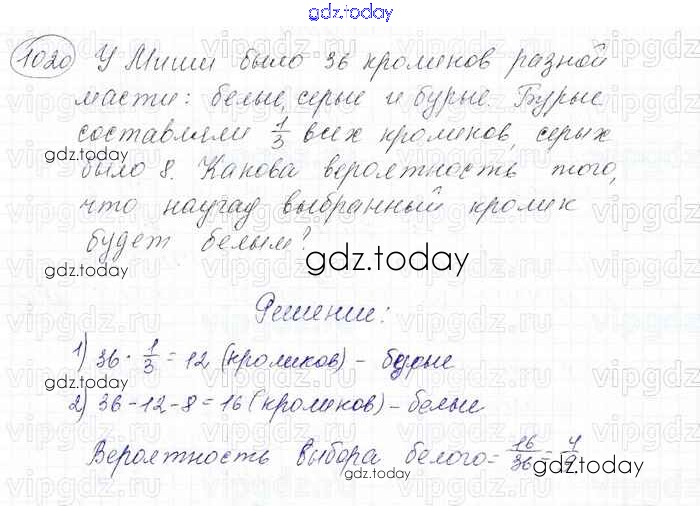 gdz.today
1020 У Миши было 36 кроликов разной
масти: белые, серые и бурые. Бурые
составляли 1/3 всех кроликов, серых
gdz.today
было 8. Какова вероятность того,
что наугад выбранный кролик
будет белым?
gdz.today
gdz.today
Решение:
1) 36 · 1/3 = 12 (кроликов) - бурые
gdz.today
2) 36-12-8=16 (кроликов) - белые
Вероятность выбора белого = 16/36 = 4/9
gdz.today
gdz.today